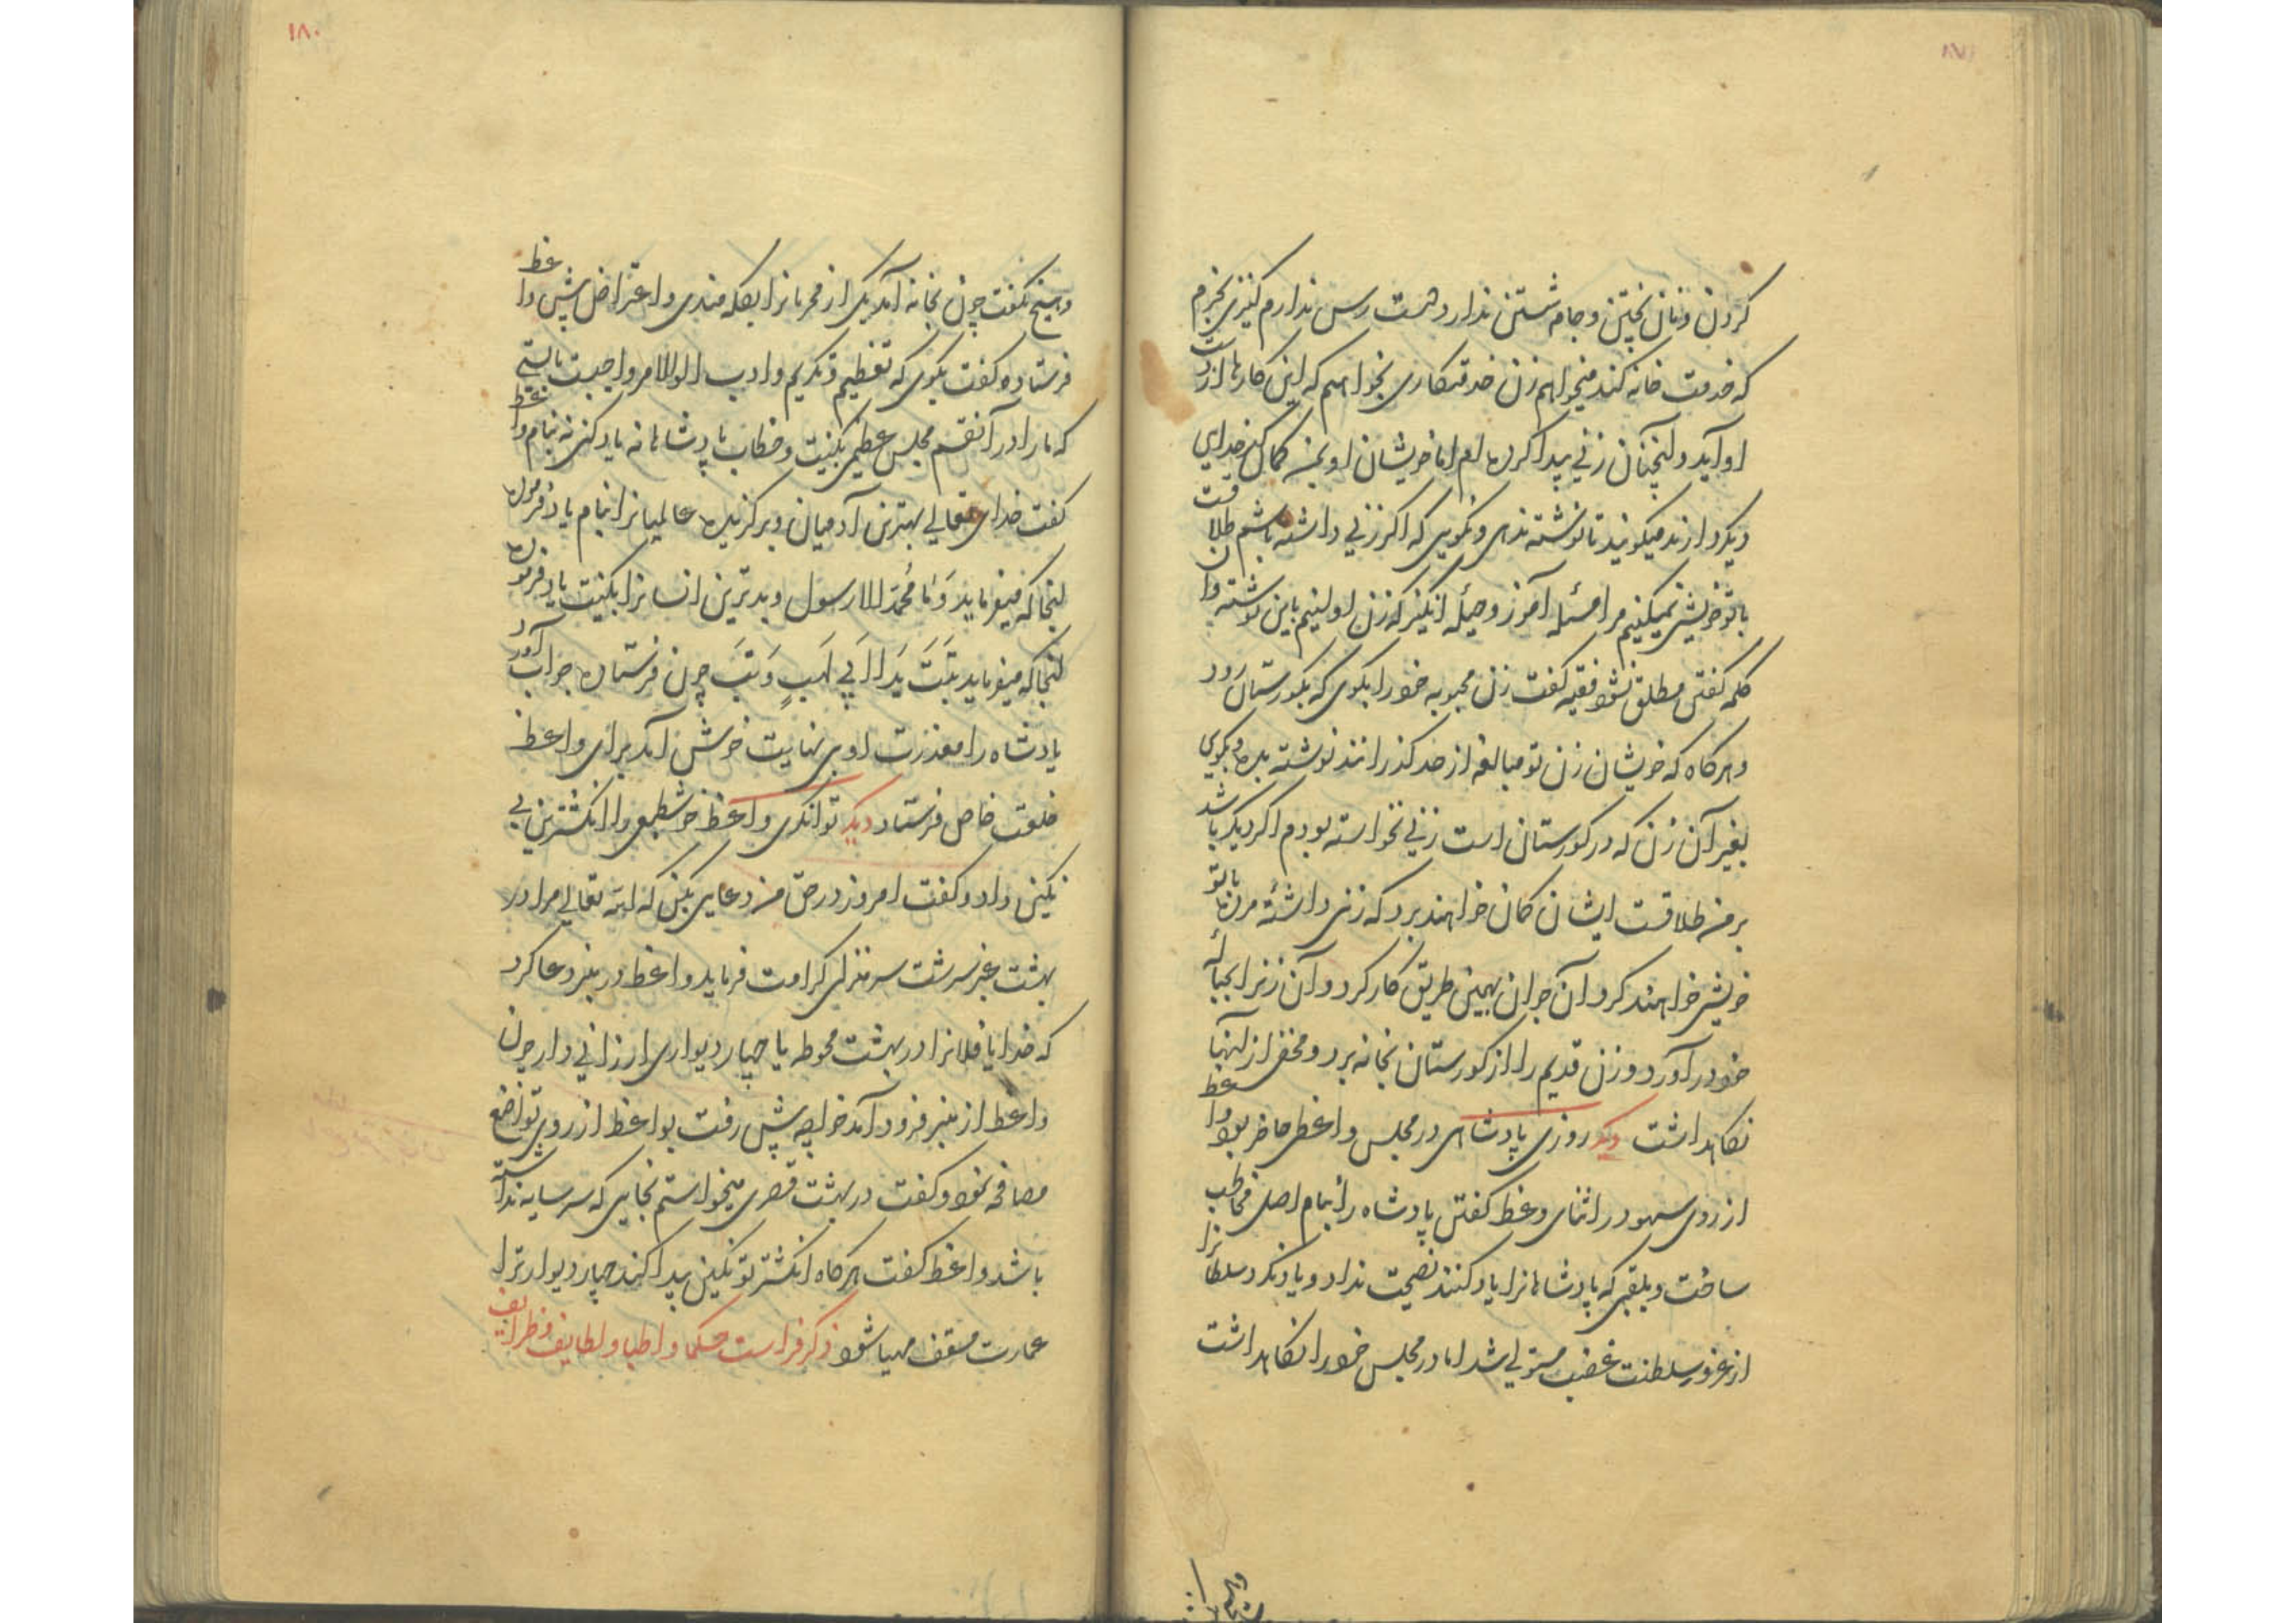 کردن و نان پختن و جامه شستن ندارد و دست رس ندارم کنیزی بخرم
که خدمت خانه کند میخواهم زن خدمتکاری بخواهم که این کارها از دست
او آید و اینچنان زنی پیدا کرده‌ام اما خویشان او بمن کمان کدخدای
دیکر دارند میکویند تا نوشته ندهی و نکویی که اکر زنی داشته باشم طلاقست
با تو خویشی نمیکنیم مرا مسئله آموز و حیله انکیز که زن اولینم باین نوشته و آن
کلمه کفتن مطلق نشود فقیه کفت زن محبوبه خود را بکوی که بکورستان رود
و هرکاه که خویشان زن تو مبالغه از حد کذرانند نوشته بده و بکوی
بغیر آن زن که در کورستان است زنی نخواسته بودم اکر دیکر باشد
بر من طلاقست ایشان کمان خواهند برد که زنی داشتهٔ مرده با تو
خویشی خواهند کرد آن جوان بهمین طریق کار کرد و آن زنرا بحبالهٔ
خود در آورد و زن قدیم را از کورستان بخانه برد و مخفی از اینها
نکاهداشت دیکر روزی پادشاهی در مجلس واعظی حاضر بود واعظ
از روی سهو در اثنای وعظ کفتن پادشاه را بنام اصلی مخاطب
ساخت و بلقبی که پادشاهانرا یاد کنند نصیحت نداد و یاد نکرد سلطانرا
از غرور سلطنت غضب مستولی شد اما در مجلس خود را نکاهداشت
و هیچ نکفت چون بخانه آمد یکی از محرمانرا بکله مندی و اعتراض پیش واعظ
فرستاده کفت بکوی که تعظیم و تکریم و ادب اولوالامر واجبست بایستی
که ما را در آنقسم مجلس عظیمی بکنیت و خطاب پادشاهانه یاد کنی نه بنام واعظ
کفت خدای تعالی بهترین آدمیان و برکزیده عالمیانرا بنام یاد فرموده
اینجا که میفرماید وَمَا مُحَمَّد الا رسول و بدترین انسانرا بکنیت یاد فرموده
اینجا که میفرماید تبّت یَدَا اَبی لَهَبٍ وَ تَبَّ چون فرستاده جواب آورد
پادشاه را معذرت اوبی نهایت خوش آمد برای واعظ
خلعت خاص فرستاد دیکر توانکری واعظ خوشطبعی را انکشترین بی
نکین داد و کفت امروز در حق من دعایی بکن که الله تعالی مرا در
بهشت عنبر سرشت سر منزلی کرامت فرماید واعظ در منبر دعا کرد
که خدایا فلانرا در بهشت محوطه با چهار دیواری ارزانی دار چون
واعظ از منبر فرود آمد خواجه پیش رفت بواعظ از روی تواضع
مصافحه نمود و کفت در بهشت قصری میخواستم بجایی که سر سایه نداشته
باشد واعظ کفت هرکاه انکشتر تو نکین پیدا کند چهار دیوار ترا
عمارت مسقف مهیا شود ذکر فراست حکما و اطبا و لطایف و ظرایف
۱۸۰